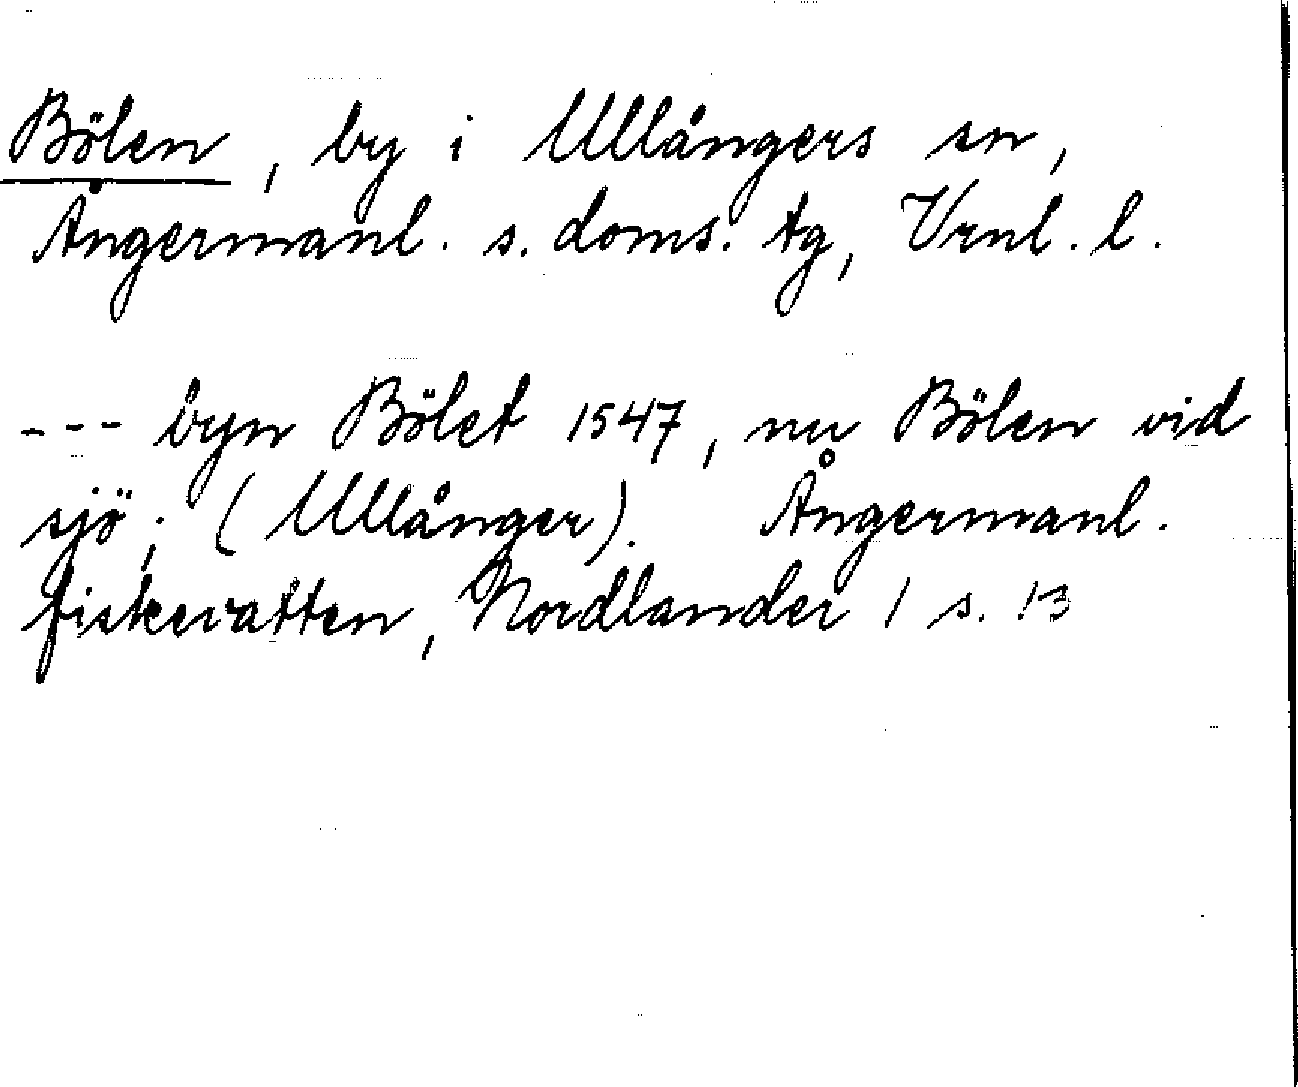 Bölen, by i Ullångers sn,
Ångermanl. s. doms. tg, Vrnl. l.
--- byn Bölet 1547, nu Bölen vid
sjö; (Ullånger). Ångermanl.
fiskevatten, Nordlander 1 s. 13